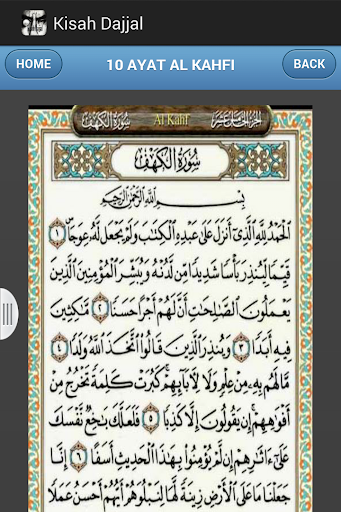 Kisah Dajjal
HOME
10 AYAT AL KAHFI
BACK
سورة الكهف
Al Kahf
الجزء الخامس عشر
سُورَةُ الكَهْفِ
بِسْمِ اللَّهِ الرَّحْمَٰنِ الرَّحِيمِ
الْحَمْدُ لِلَّهِ الَّذِي أَنزَلَ عَلَىٰ عَبْدِهِ الْكِتَابَ وَلَمْ يَجْعَل لَّهُ عِوَجًا ۜ ١
قَيِّمًا لِّيُنذِرَ بَأْسًا شَدِيدًا مِّن لَّدُنْهُ وَيُبَشِّرَ الْمُؤْمِنِينَ الَّذِينَ
يَعْمَلُونَ الصَّالِحَاتِ أَنَّ لَهُمْ أَجْرًا حَسَنًا ٢ مَّاكِثِينَ
فِيهِ أَبَدًا ٣ وَيُنذِرَ الَّذِينَ قَالُوا اتَّخَذَ اللَّهُ وَلَدًا ٤
مَّا لَهُم بِهِ مِنْ عِلْمٍ وَلَا لِآبَائِهِمْ ۚ كَبُرَتْ كَلِمَةً تَخْرُجُ مِنْ
أَفْوَاهِهِمْ ۚ إِن يَقُولُونَ إِلَّا كَذِبًا ٥ فَلَعَلَّكَ بَاخِعٌ نَّفْسَكَ
عَلَىٰ آثَارِهِمْ إِن لَّمْ يُؤْمِنُوا بِهَٰذَا الْحَدِيثِ أَسَفًا ٦ إِنَّا
جَعَلْنَا مَا عَلَى الْأَرْضِ زِينَةً لَّهَا لِنَبْلُوَهُمْ أَيُّهُمْ أَحْسَنُ عَمَلًا